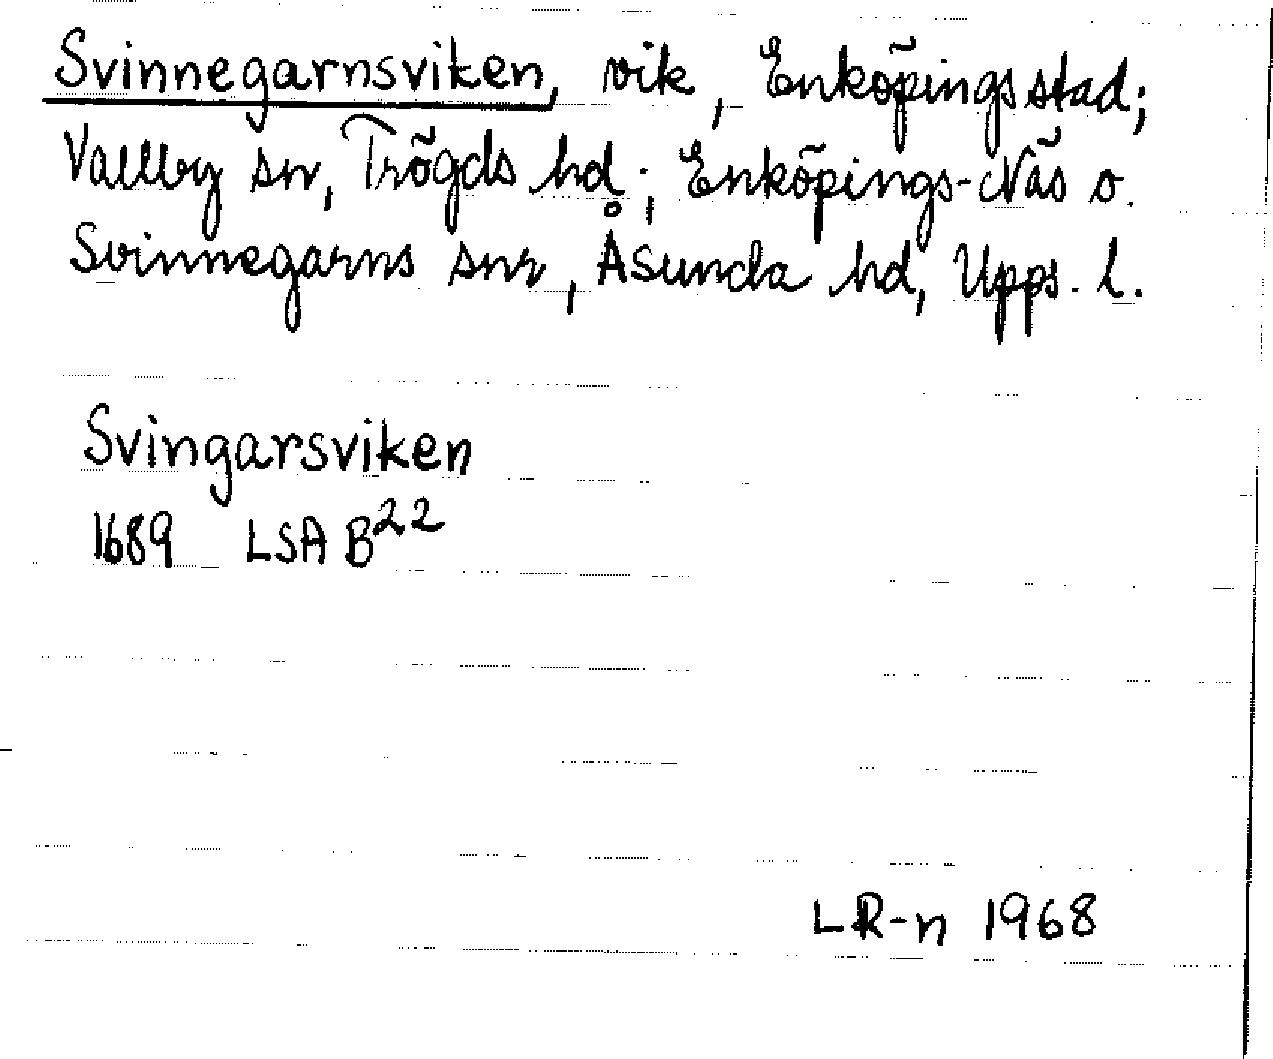 Svinnegarnsviken, vik, Enköpings stad;
Vallby sn, Trögds hd; Enköpings-Näs o.
Svinnegarns snr, Åsunda hd, Upps. l.
Svingarsviken
1689 LSA B²²
LR-n 1968